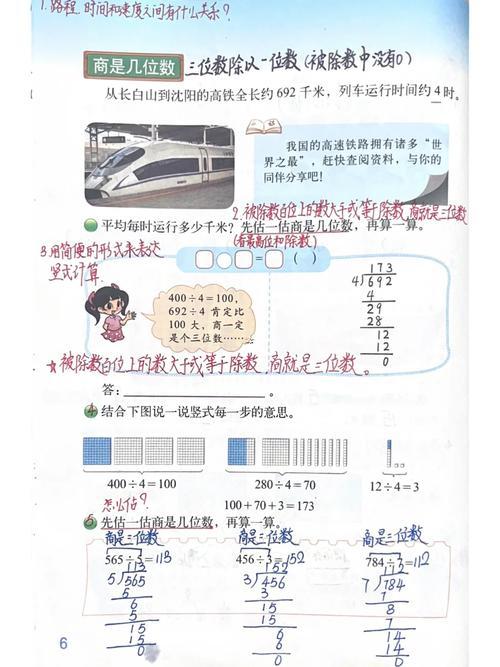 1.路程、时间和速度之间有什么关系?
商是几位数 三位数除以一位数(被除数中没有0)
从长白山到沈阳的高铁全长约692千米,列车运行时间约4时。
我国的高速铁路拥有诸多“世
界之最”,赶快查阅资料,与你的
同伴分享吧!
2.被除数百位上的数大于或等于除数,商就是三位数
平均每时运行多少千米?先估一估商是几位数,再算一算。
(看最高位和除数)
3.用简便的形式来表达
竖式计算.
□○□=□( )
400÷4=100,
692÷4肯定比
100大,商一定
是个三位数……
173
4 692
4
29
28
12
12
0
☆被除数百位上的数大于或等于除数,商就是三位数。
答:。
4 结合下图说一说竖式每一步的意思。
400÷4=100 280÷4=70 12÷4=3
怎么估?
100+70+3=173
5 先估一估商是几位数,再算一算。
商是三位数 商是三位数 商是三位数
565÷5=113 456÷3=152 784÷7=112
113 152 112
5 565 3 456 7 784
5 3 7
6 15 8
5 15 7
15 6 14
15 6 14
0 0 0
6